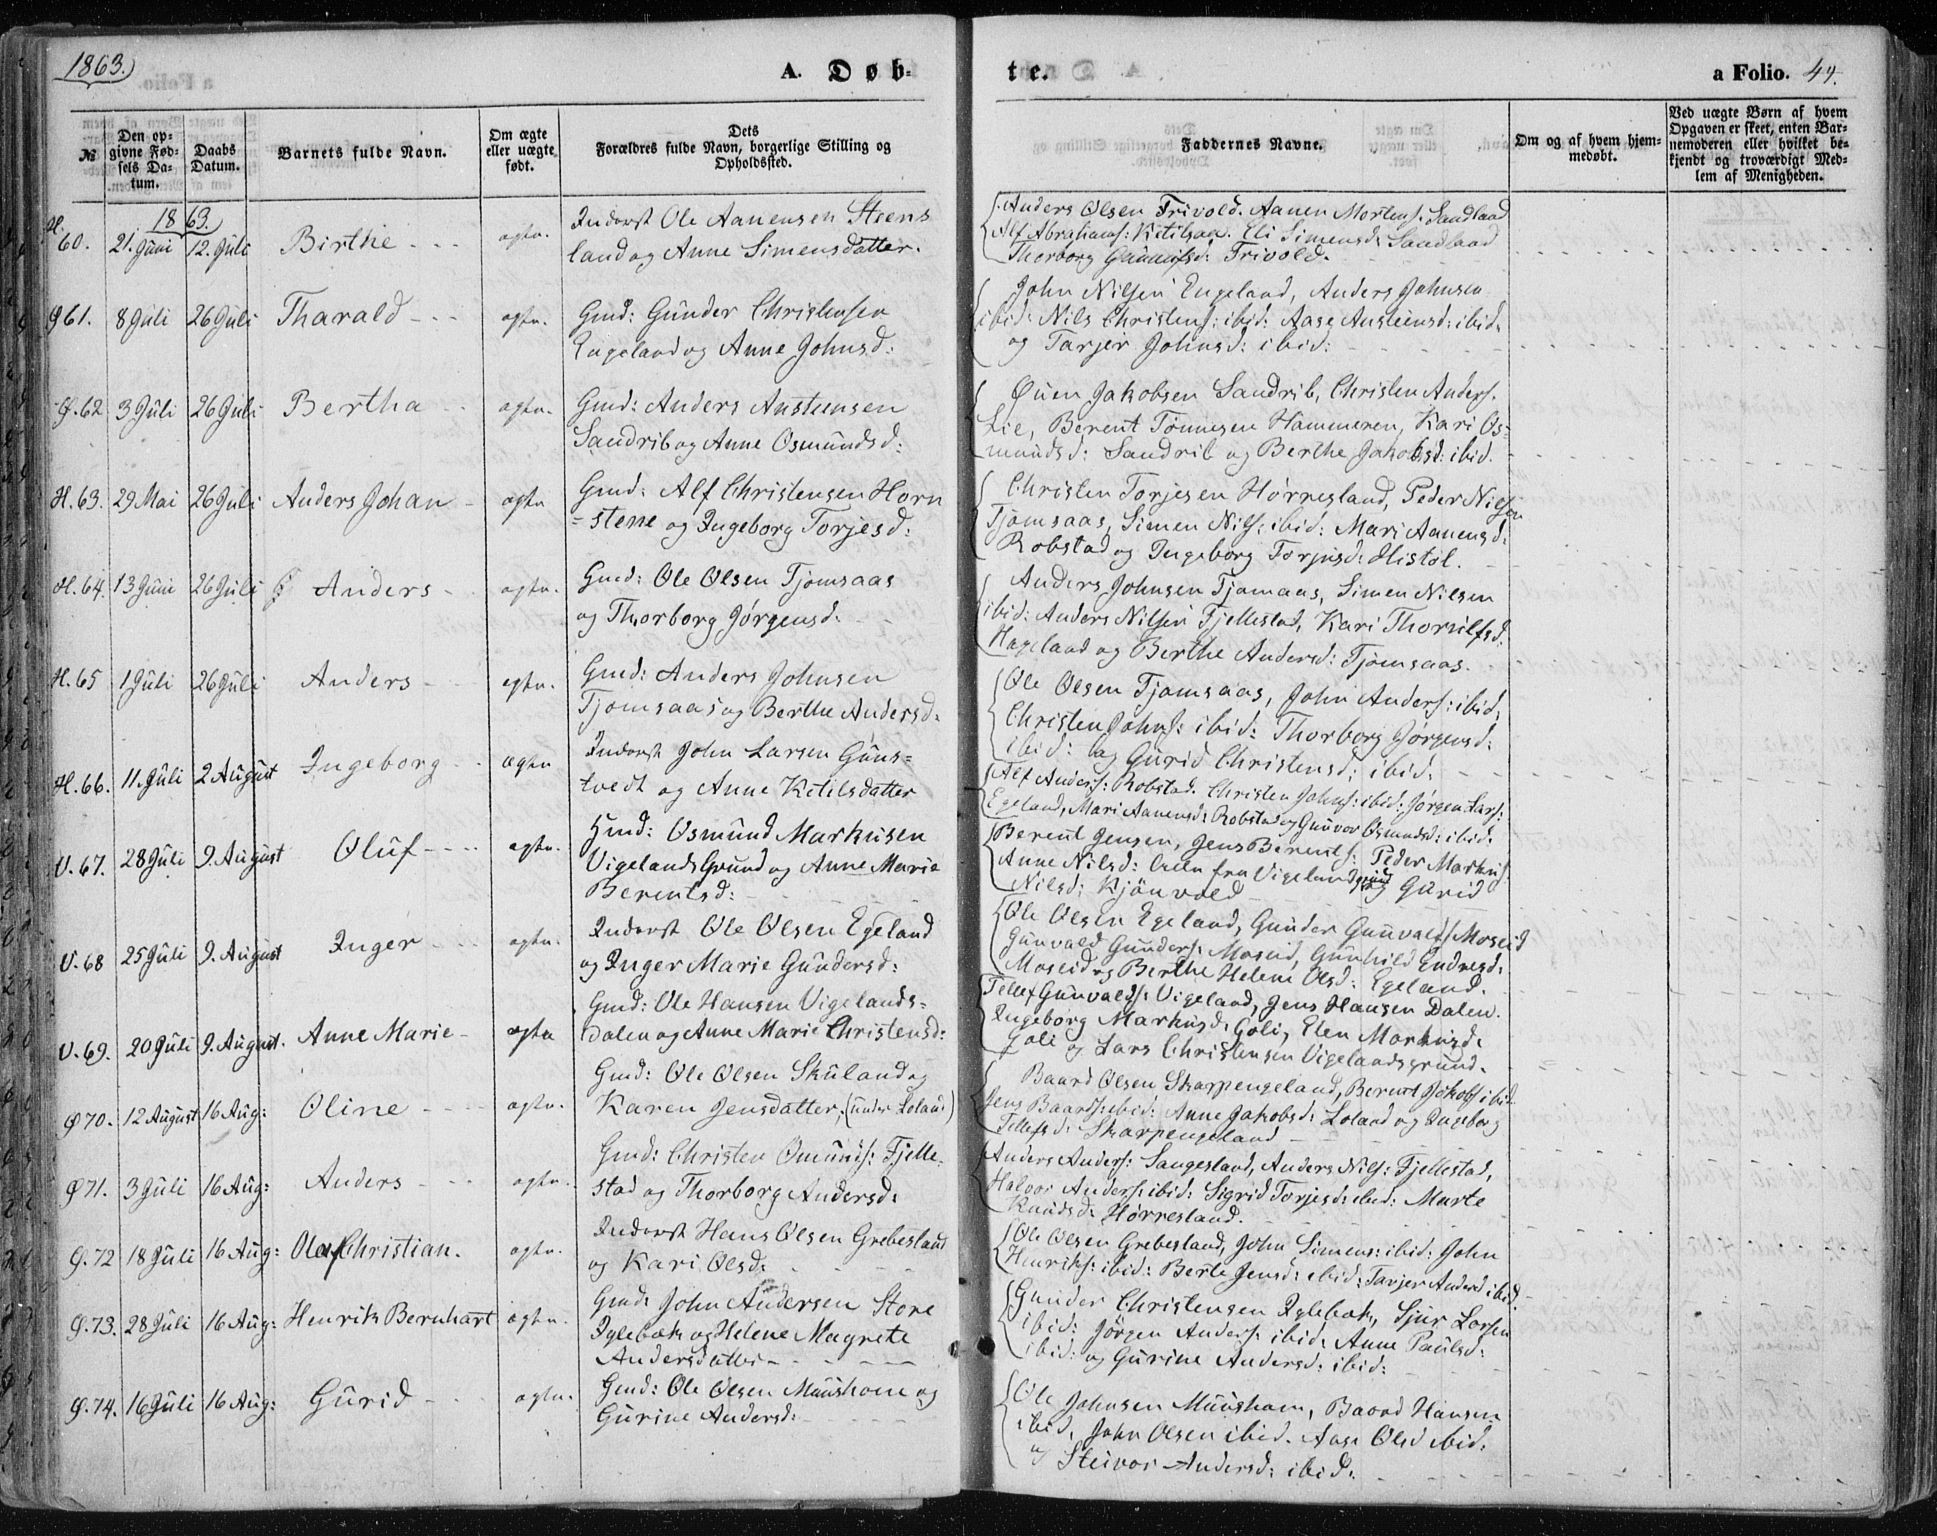 1863. A. Døb- te. a Folio. 44.
№ Den opgivne Fødsels Datum. Daabs Datum. Barnets fulde Navn. Om ægte eller uægte født. Dets Forældres fulde Navn, borgerlige Stilling og Opholdssted. Faddernes Navne. Om og af hvem hjemmedøbt. Ved uægte Børn af hvem Opgaven er skeet, enten Barnemoderen eller hvilket bekjendt og troværdigt Medlem af Menigheden.
1863.
H. 60. 21. Juni 12. Juli Birthe ægte. Inderst Ole Aanensen Steens
land og Anne Simensdatter.
Anders Olsen Trivold. Aanen Mortens: Sandland
Alf Abrahams: Ketilsaa. Eli Simensd: Sandland
Thorborg Gunnufsd: Trivold.
Ø 61. 8 Juli 26 Juli Tharald ægte. Gmd: Gunder Christensen
Engeland og Anne Johnsd:
John Nilsen Engeland, Anders Johnsen
ibid: Nils Christens: ibid: Aase Austeinsd: ibid:
og Tarjer Johnsd: ibid:
Ø. 62 3 Juli 26 Juli Bertha ægte. Gmd: Anders Austensen
Sandrib og Anne Osmundsd:
Ouen Jakobsen Sandrib, Christen Anders.
Lie, Berent Tønnesen Hammeren, Kari Os-
mundsd: Sandrib og Berthe Jakobsd: ibid.
H. 63. 29 Mai 26 Juli Anders Johan ægte Gmd: Alf Christensen Horn
-stene og Ingeborg Torjesd:
Christen Torjesen Hørresland, Peder Nilsen
Tjomsaas, Simen Nils: ibid: Mari Aanensd:
Robstad og Ingeborg Torjusd: Histøl.
H. 64. 13 Juni 26 Juli Anders ægte. Gmd: Ole Olsen Tjomsaas
og Thorborg Jørgensd.
Anders Johnsen Tjomaas, Simen Nilsen
ibid: Anders Nilsen Fjellestad, Kari Thorulfsd:
Hageland og Berthe Andersd: Tjomsaas.
H. 65 1 Juli 26 Juli Anders ægte. Gmd: Anders Johnsen
Tjomsaas og Berthe Andersd:
Ole Olsen Tjomsaas, John Anders: ibid:
Christen Johns: ibid: Thorborg Jørgensd:
ibid: og Gurid Christensd: ibid:
H. 66. 11. Juli 2 August Ingeborg ægte Inderst John Larsen Guns-
tvedt og Anne Ketilsdatter
Alf Anders: Robstad. Christen Johns: ibid: Jørgen Lars:
Egeland, Mari Aanensd: Robstad og Gunvor Osmundsd: ibid:
V. 67. 28 Juli 9. August Oluf ægte. Gmd: Osmund Markusen
Vigelands Grund og Anne Marie
Berentsd:
Berent Jensen, Jens Berents: Peder Markus
Anne Nilsd: alle fra Vigelandsgrund og Gurid
Nilsd: Kjønvold
V. 68 25 Juli 9. August Inger ægte. Inderst Ole Olsen Egeland
og Inger Marie Gundersd:
Ole Olsen Egeland, Gunder Gunvalds: Moseid
Gunvald Gunders: Moseid, Gunhild Endresd:
Moseid og Berthe Helene Olsd: Egeland.
V. 69. 20 Juli 9. August. Anne Marie ægte Gmd: Ole Hansen Vigelands-
dalen og Anne Marie Christensd:
Tellef Gunvalds: Vigeland, Jens Hansen Dalen.
Ingeborg Markusd: Goli, Elen Markusd:
Goli og Lars Christensen Vigelandsgrund.
Ø 70. 12 August 16 Aug: Oline ægte. Gmd: Ole Olsen Skuland og
Karen Jensdatter, (under Loland)
Baard Olsen Skarpengeland, Berent Jakobs: ibid
Jens Baards: ibid: Anne Jakobsd: Loland og Ingeborg
Tellefsd: Skarpengeland
Ø 71. 3 Juli 16 Aug: Anders ægte. Gmd: Christen Omunds: Fjelle-
stad og Thorborg Andersd:
Anders Anders: Sangesland, Anders Nils: Fjellestad,
Halvor Anders: ibid: Sigrid Torjesd: ibid: Marte
Knudsd: Hørresland.
Ø. 72 18 Juli 16 Aug: Olaf Christian. ægte. Inderst Hans Olsen Grebesland
og Kari Olsd:
Ole Olsen Grebesland, John Simens: ibid: John
Henriks: ibid: Berte Jensd: ibid: Tarjer Andersd ibid.
Ø. 73. 28 Juli 16 Aug: Henrik Bernhart ægte. Gmd: John Andersen Store
Iglebæk og Helene Magrete
Andersdatter
Gunder Christensen Iglebæk, Sjur Larsen
ibid: Jørgen Anders: ibid: Anne Paulsd:
ibid: og Gurine Andersd: ibid:
Ø. 74. 16 Juli 16 Aug: Gurid ægte. Gmd: Ole Olsen Muushom og
Gurine Andersd:
Ole Johnsen Muusham, Baard Hansen
ibid, John Olsen ibid. Aase Olsd ibid:
og Steivor Andersd: ibid: